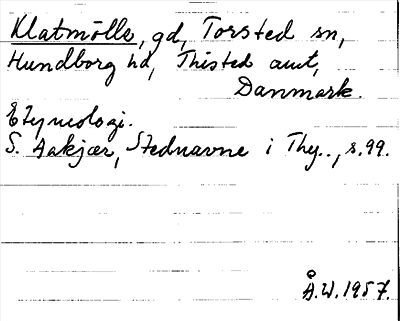 Klatmölle, gd, Torsted sn,
Hundborg hd, Thisted amt,
Danmark.
Etymologi.
S. Aakjær, Stednavne i Thy.., s.99.
Å.W. 1957.